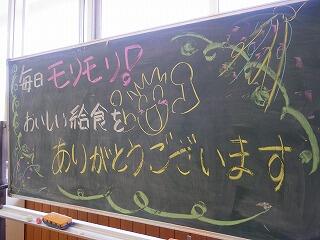 毎日モリモリ!
おいしい給食を
ありがとうございます